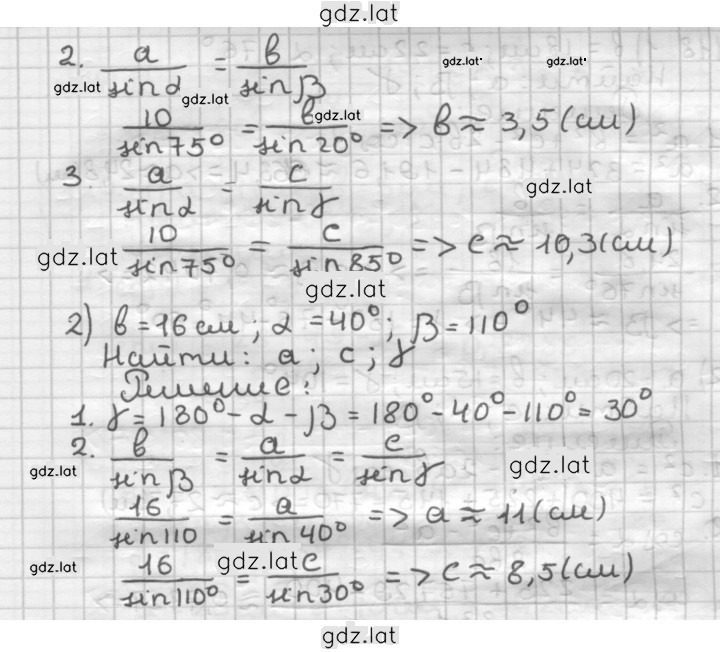 gdz.lat
2. a/sin α = b/sin β
gdz.lat gdz.lat gdz.lat gdz.lat
10/sin 75° = b/sin 20° => b ≈ 3,5 (см)
gdz.lat
3. a/sin α = c/sin γ
gdz.lat
10/sin 75° = c/sin 85° => c ≈ 10,3 (см)
gdz.lat
gdz.lat
2) b = 16 см ; α = 40° ; β = 110°
Найти: a ; c ; γ
Решение:
1. γ = 180° - α - β = 180° - 40° - 110° = 30°
2. b/sin β = a/sin α = c/sin γ
gdz.lat gdz.lat
16/sin 110 = a/sin 40° => a ≈ 11 (см)
16/sin 110° = c/sin 30° => c ≈ 8,5 (см)
gdz.lat gdz.lat
gdz.lat